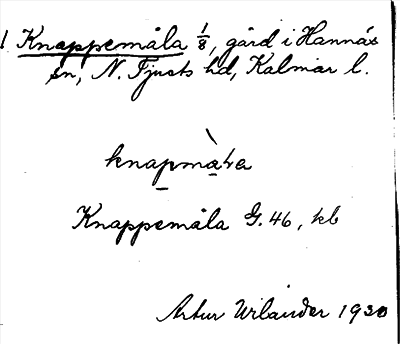 1 Knappemåla 1/8, gård i Hannäs
sn, N. Tjusts hd, Kalmar l.
knapmàla
Knappemåla G. 46, kb
Artur Urlander 1930